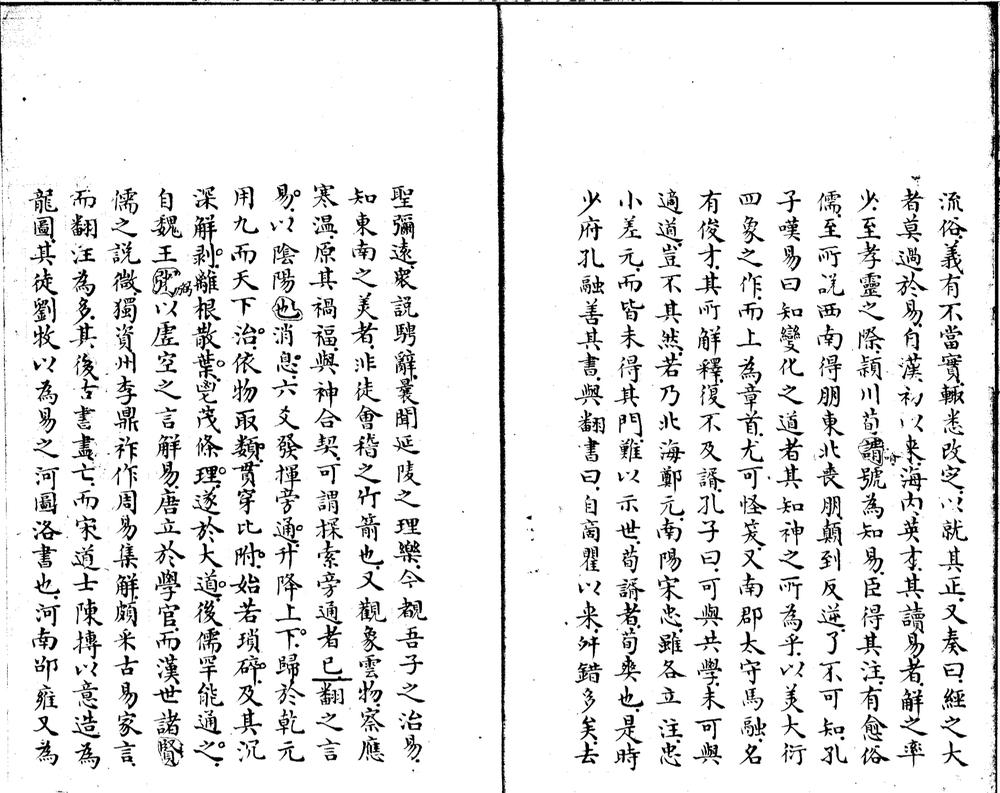 流俗義有不當實輒悉改定以就其正又奏曰經之大
者莫過於易自漢初以來海內英才其讀易者解之率
少至孝靈之際潁川荀諝號為知易臣得其注有愈俗
儒至所說西南得朋東北喪朋顛到反逆了不可知孔
子嘆易曰知變化之道者其知神之所為乎以美大衍
四象之作而上為章首尤可怪笑又南郡太守馬融名
有俊才其所解釋復不及諝孔子曰可與共學未可與
適道豈不其然若乃北海鄭元南陽宋忠雖各立注忠
小差元而皆未得其門難以示世荀諝者荀爽也是時
少府孔融善其書與翻書曰自商瞿以來舛錯多矣去
聖彌遠衆說騁辭曩聞延陵之理樂今覩吾子之治易
知東南之美者非徒會稽之竹箭也又觀象雲物察應
寒溫原其禍福與神合契可謂探索旁通者已翻之言
易以陰陽也消息六爻發揮旁通升降上下歸於乾元
用九而天下治依物取類貫穿比附始若瑣碎及其沉
深解剥離根散葉鬯茂條理遂於大道後儒罕能通之
自魏王弼以虛空之言解易唐立於學官而漢世諸賢
儒之說微獨資州李鼎祚作周易集解頗采古易家言
而翻注為多其後古書盡亡而宋道士陳摶以意造為
龍圖其徒劉牧以為易之河圖洛書也河南邵雍又為